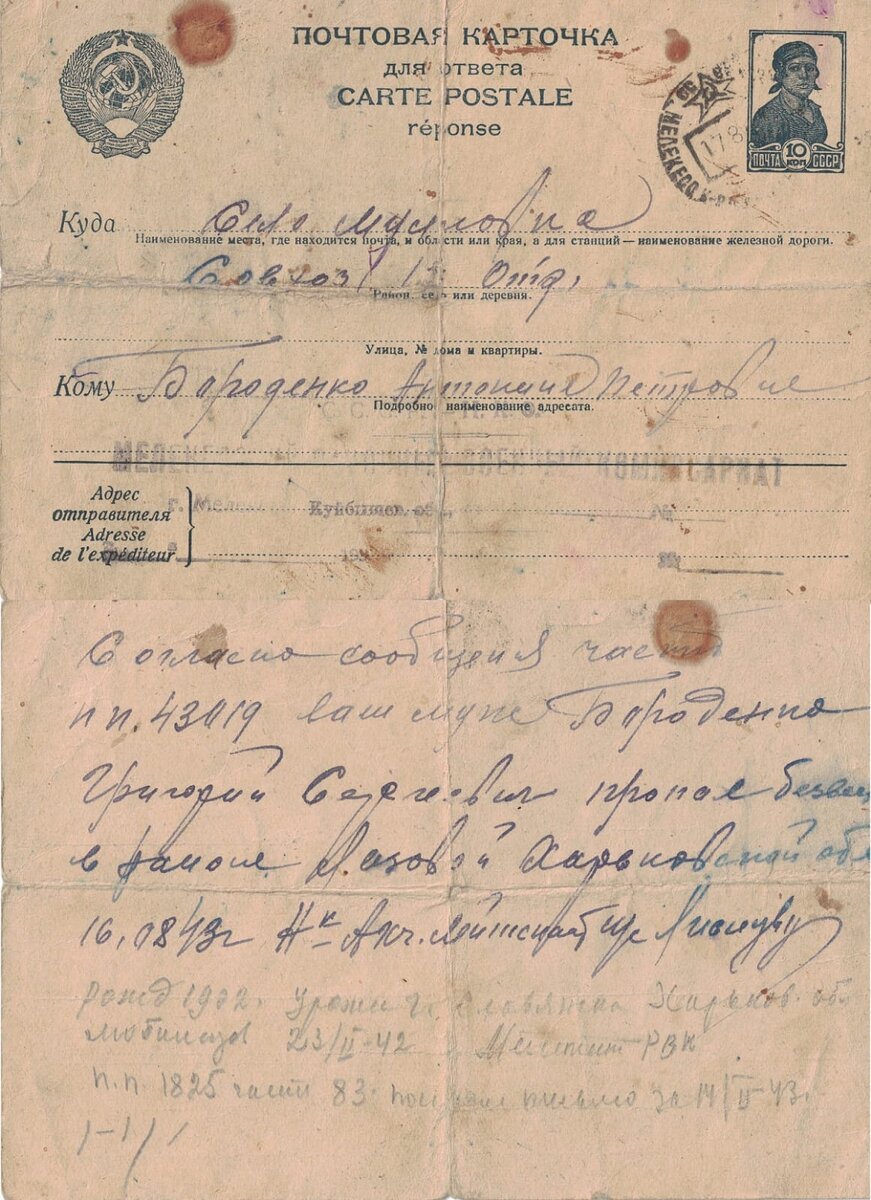 ПОЧТОВАЯ КАРТОЧКА
для ответа
CARTE POSTALE
réponse
ПОЧТА 10 КОП СССР
МЕЛЕКЕСС
17 8
Куда Село Мулловка
Наименование места, где находится почта, и области или края, а для станций — наименование железной дороги.
Совхоз Отд.
Район, село или деревня.
Улица, № дома и квартиры.
Кому Бороденко Антонине Петровне
Подробное наименование адресата.
ВОЕННЫЙ КОМИССАРИАТ
Адрес
отправителя
Adresse
de l'expéditeur
г. Мелекесс Куйбышев. обл.,
№
Согласно сообщения части
пп. 43019 ваш муж Бороденко
Григорий Сергеевич пропал безвес
в районе Лозовой Харьковской обл
16.08 43г
рожд 1902. урож. г. Славянска Харьков. обл
мобилизов 23/II-42 РВК
п.п. 1825 часть 83 получил письмо за 14/II-43.